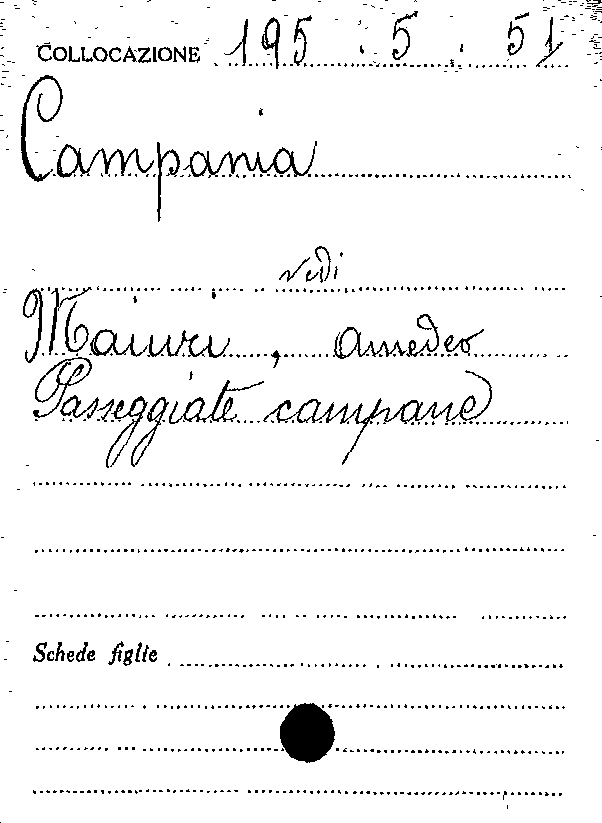 COLLOCAZIONE 195.5.51
Campania
vedi
Maiuri, Amedeo
Passeggiate campane
Schede figlie